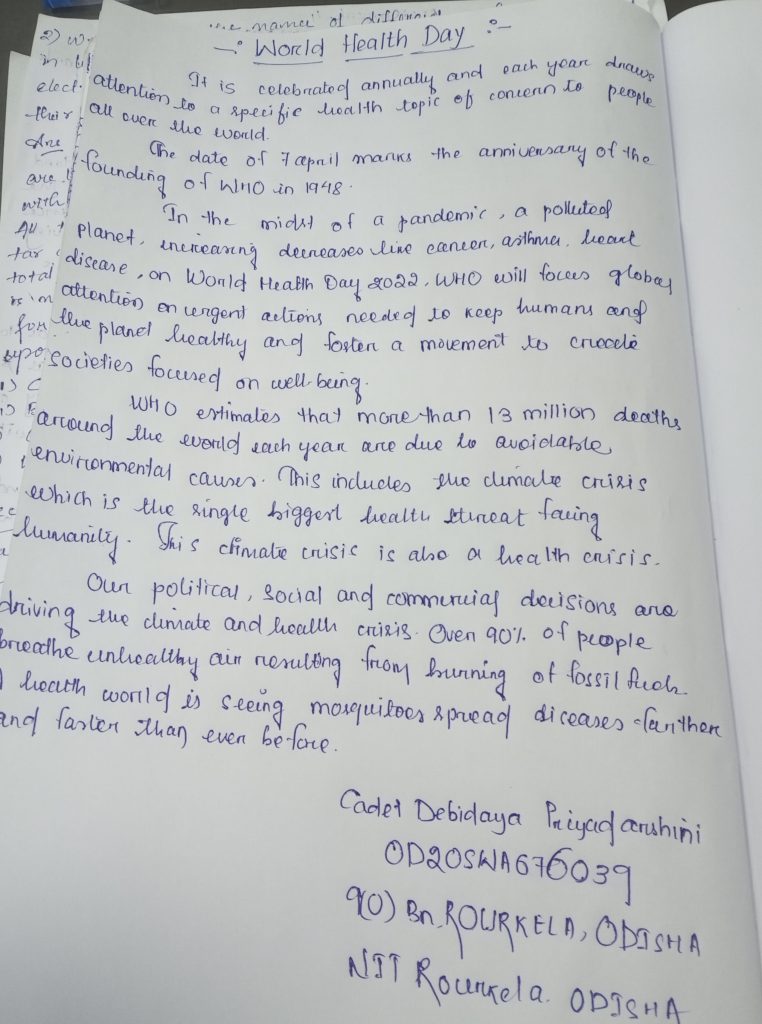 the names of different
—: World Health Day :—
It is celebrated annually and each year draws
attention to a specific health topic of concern to people
all over the world.
The date of 7 april marks the anniversary of the
founding of WHO in 1948.
In the midst of a pandemic, a polluted
planet, increasing decreases like cancer, asthma, heart
disease, on World Health Day 2022, WHO will focus global
attention on urgent actions needed to keep humans and
the planet healthy and foster a movement to create
societies focused on well-being.
WHO estimates that more than 13 million deaths
around the world each year are due to avoidable
environmental causes. This includes the climate crisis
which is the single biggest health threat facing
humanity. This climate crisis is also a health crisis.
Our political, social and commercial decisions are
driving the climate and health crisis. Over 90% of people
breathe unhealthy air resulting from burning of fossil fuels.
A heath world is seeing mosquitoes spread diceases farther
and faster than ever before.
Cadet Debidaya Priyadarshini
OD20SWA676039
9(O) Bn, ROURKELA, ODISHA
NIT Rourkela. ODISHA
2) W
elect.
their
are
with
total
for